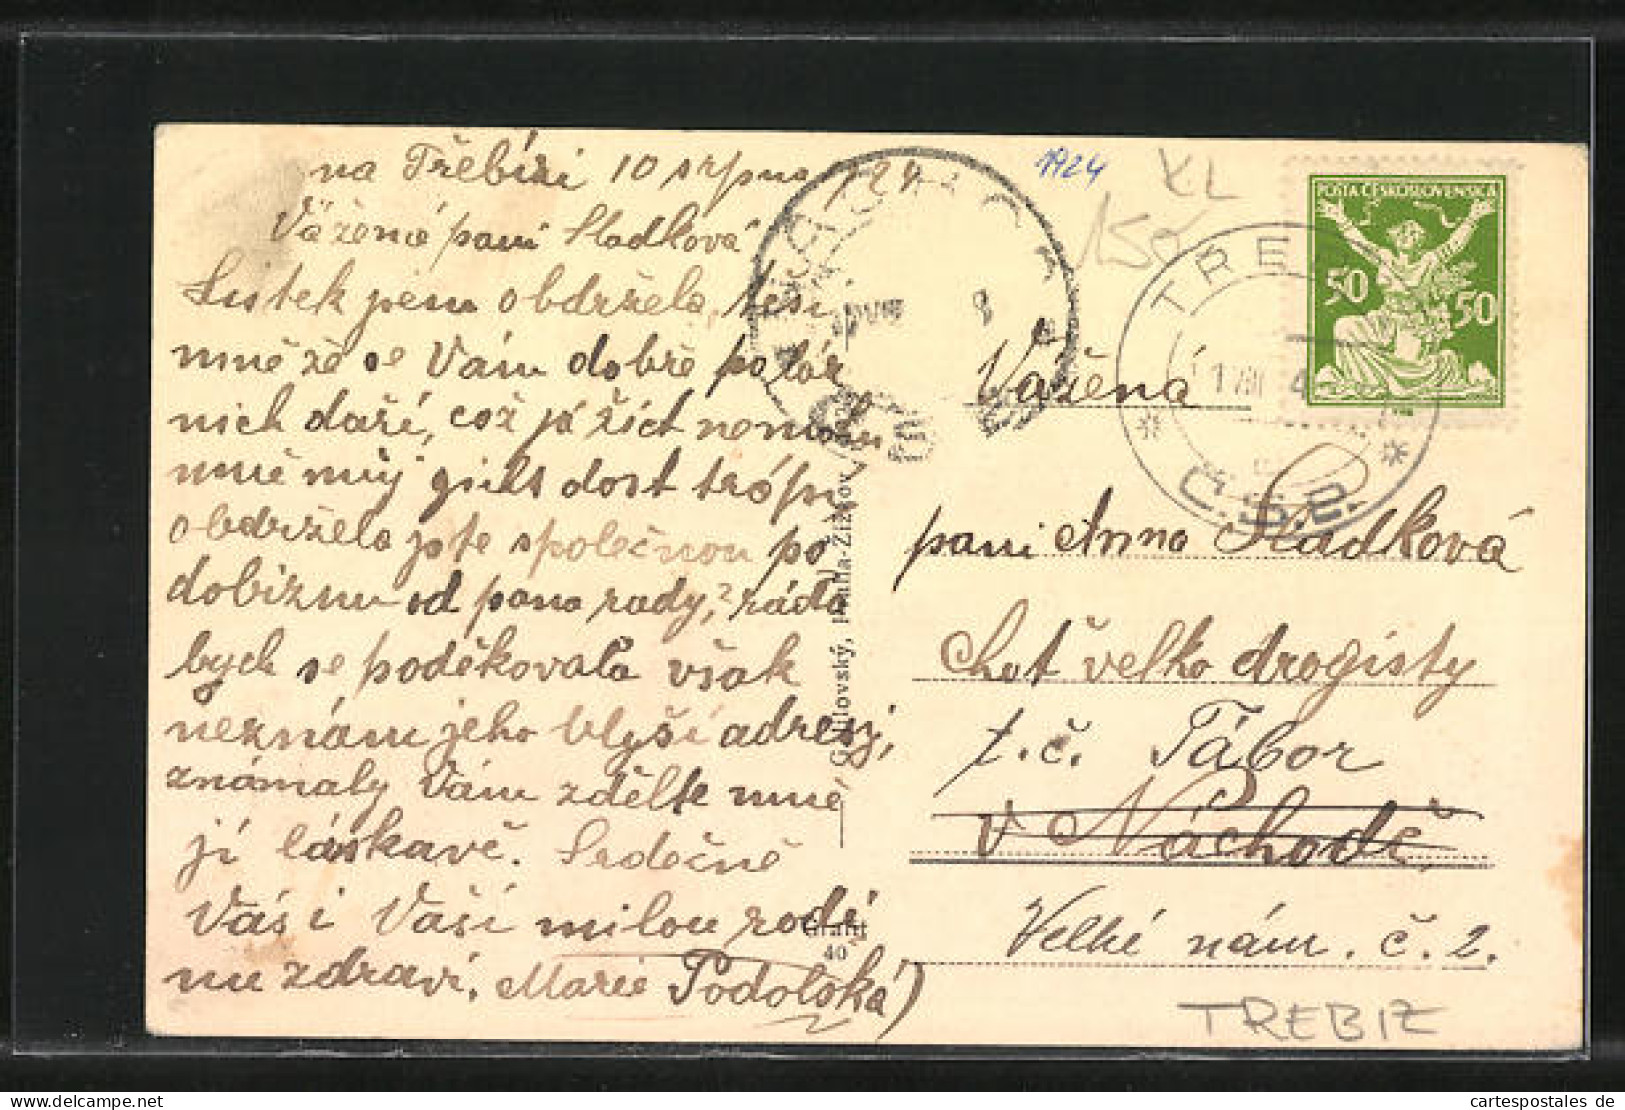 na Třebízi 10 srpna 24
Vážená paní Sladková
Lístek jsem obdržela, těší
mně že se Vám dobře po lár
nich daří, což já říct nemohu
mně můj
dost trápí
obdržela jste společnou po
dobiznu od pana rady, ? ráda
bych se poděkovala však
neznám jeho bližší adresy,
známaly Vám zdělte mně
jí láskavě. Srdečně
Vás i Vaší milou rodi
nu zdraví, Marie Podolská)
1924
XL
150
POŠTA ČESKOSLOVENSKÁ
50
50
TŘE
Č.S.R.
Vážená
paní Anna Sladková
choť velko drogisty
t. č. Tábor
v Náchodě
Velké nám. č. 2.
Grafit
40
TREBIZ
cartespostales de